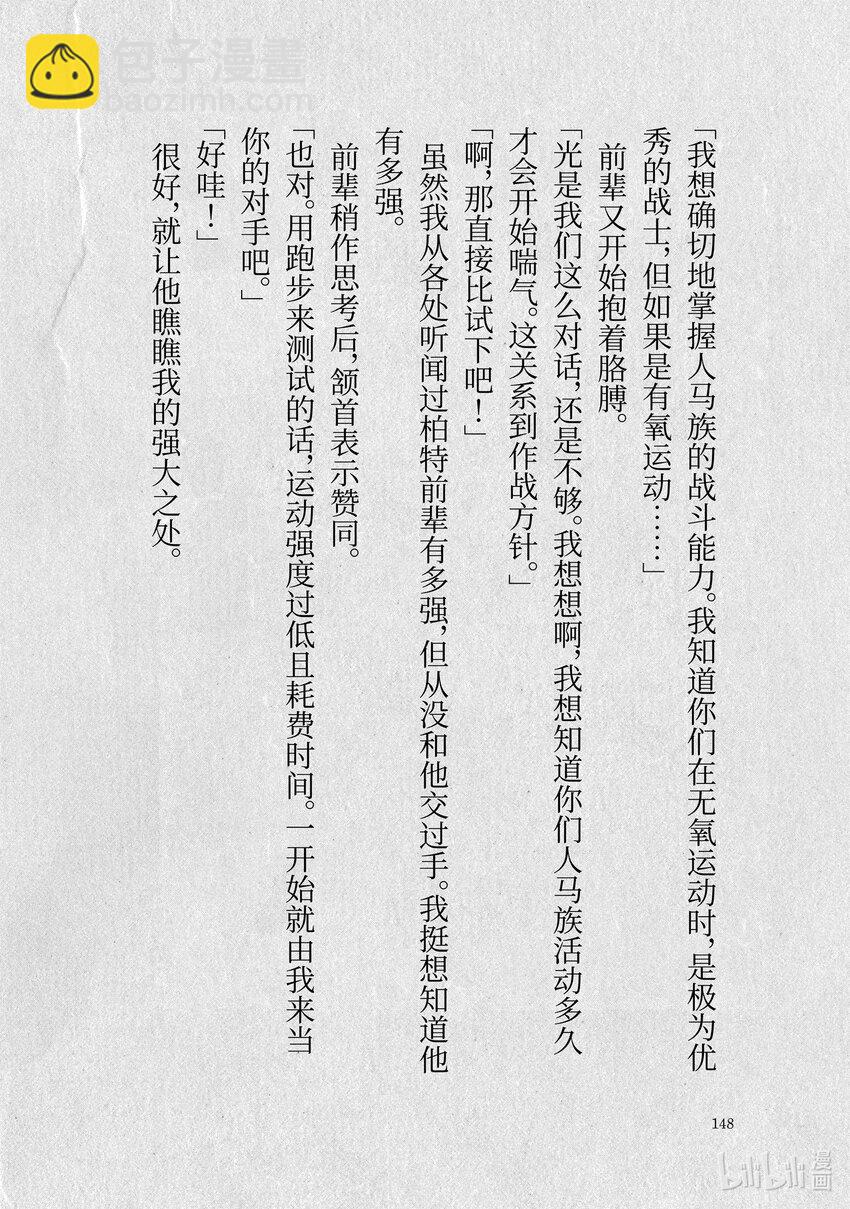 包子漫畫
baozimh.com
「我想确切地掌握人马族的战斗能力。我知道你们在无氧运动时，是极为优
秀的战士，但如果是有氧运动……」
前辈又开始抱着胳膊。
「光是我们这么对话，还是不够。我想想啊，我想知道你们人马族活动多久
才会开始喘气。这关系到作战方针。」
「啊，那直接比试下吧！」
虽然我从各处听闻过柏特前辈有多强，但从没和他交过手。我挺想知道他
有多强。
前辈稍作思考后，颔首表示赞同。
「也对。用跑步来测试的话，运动强度过低且耗费时间。一开始就由我来当
你的对手吧。」
「好哇！」
很好，就让他瞧瞧我的强大之处。
148
bilibili漫画